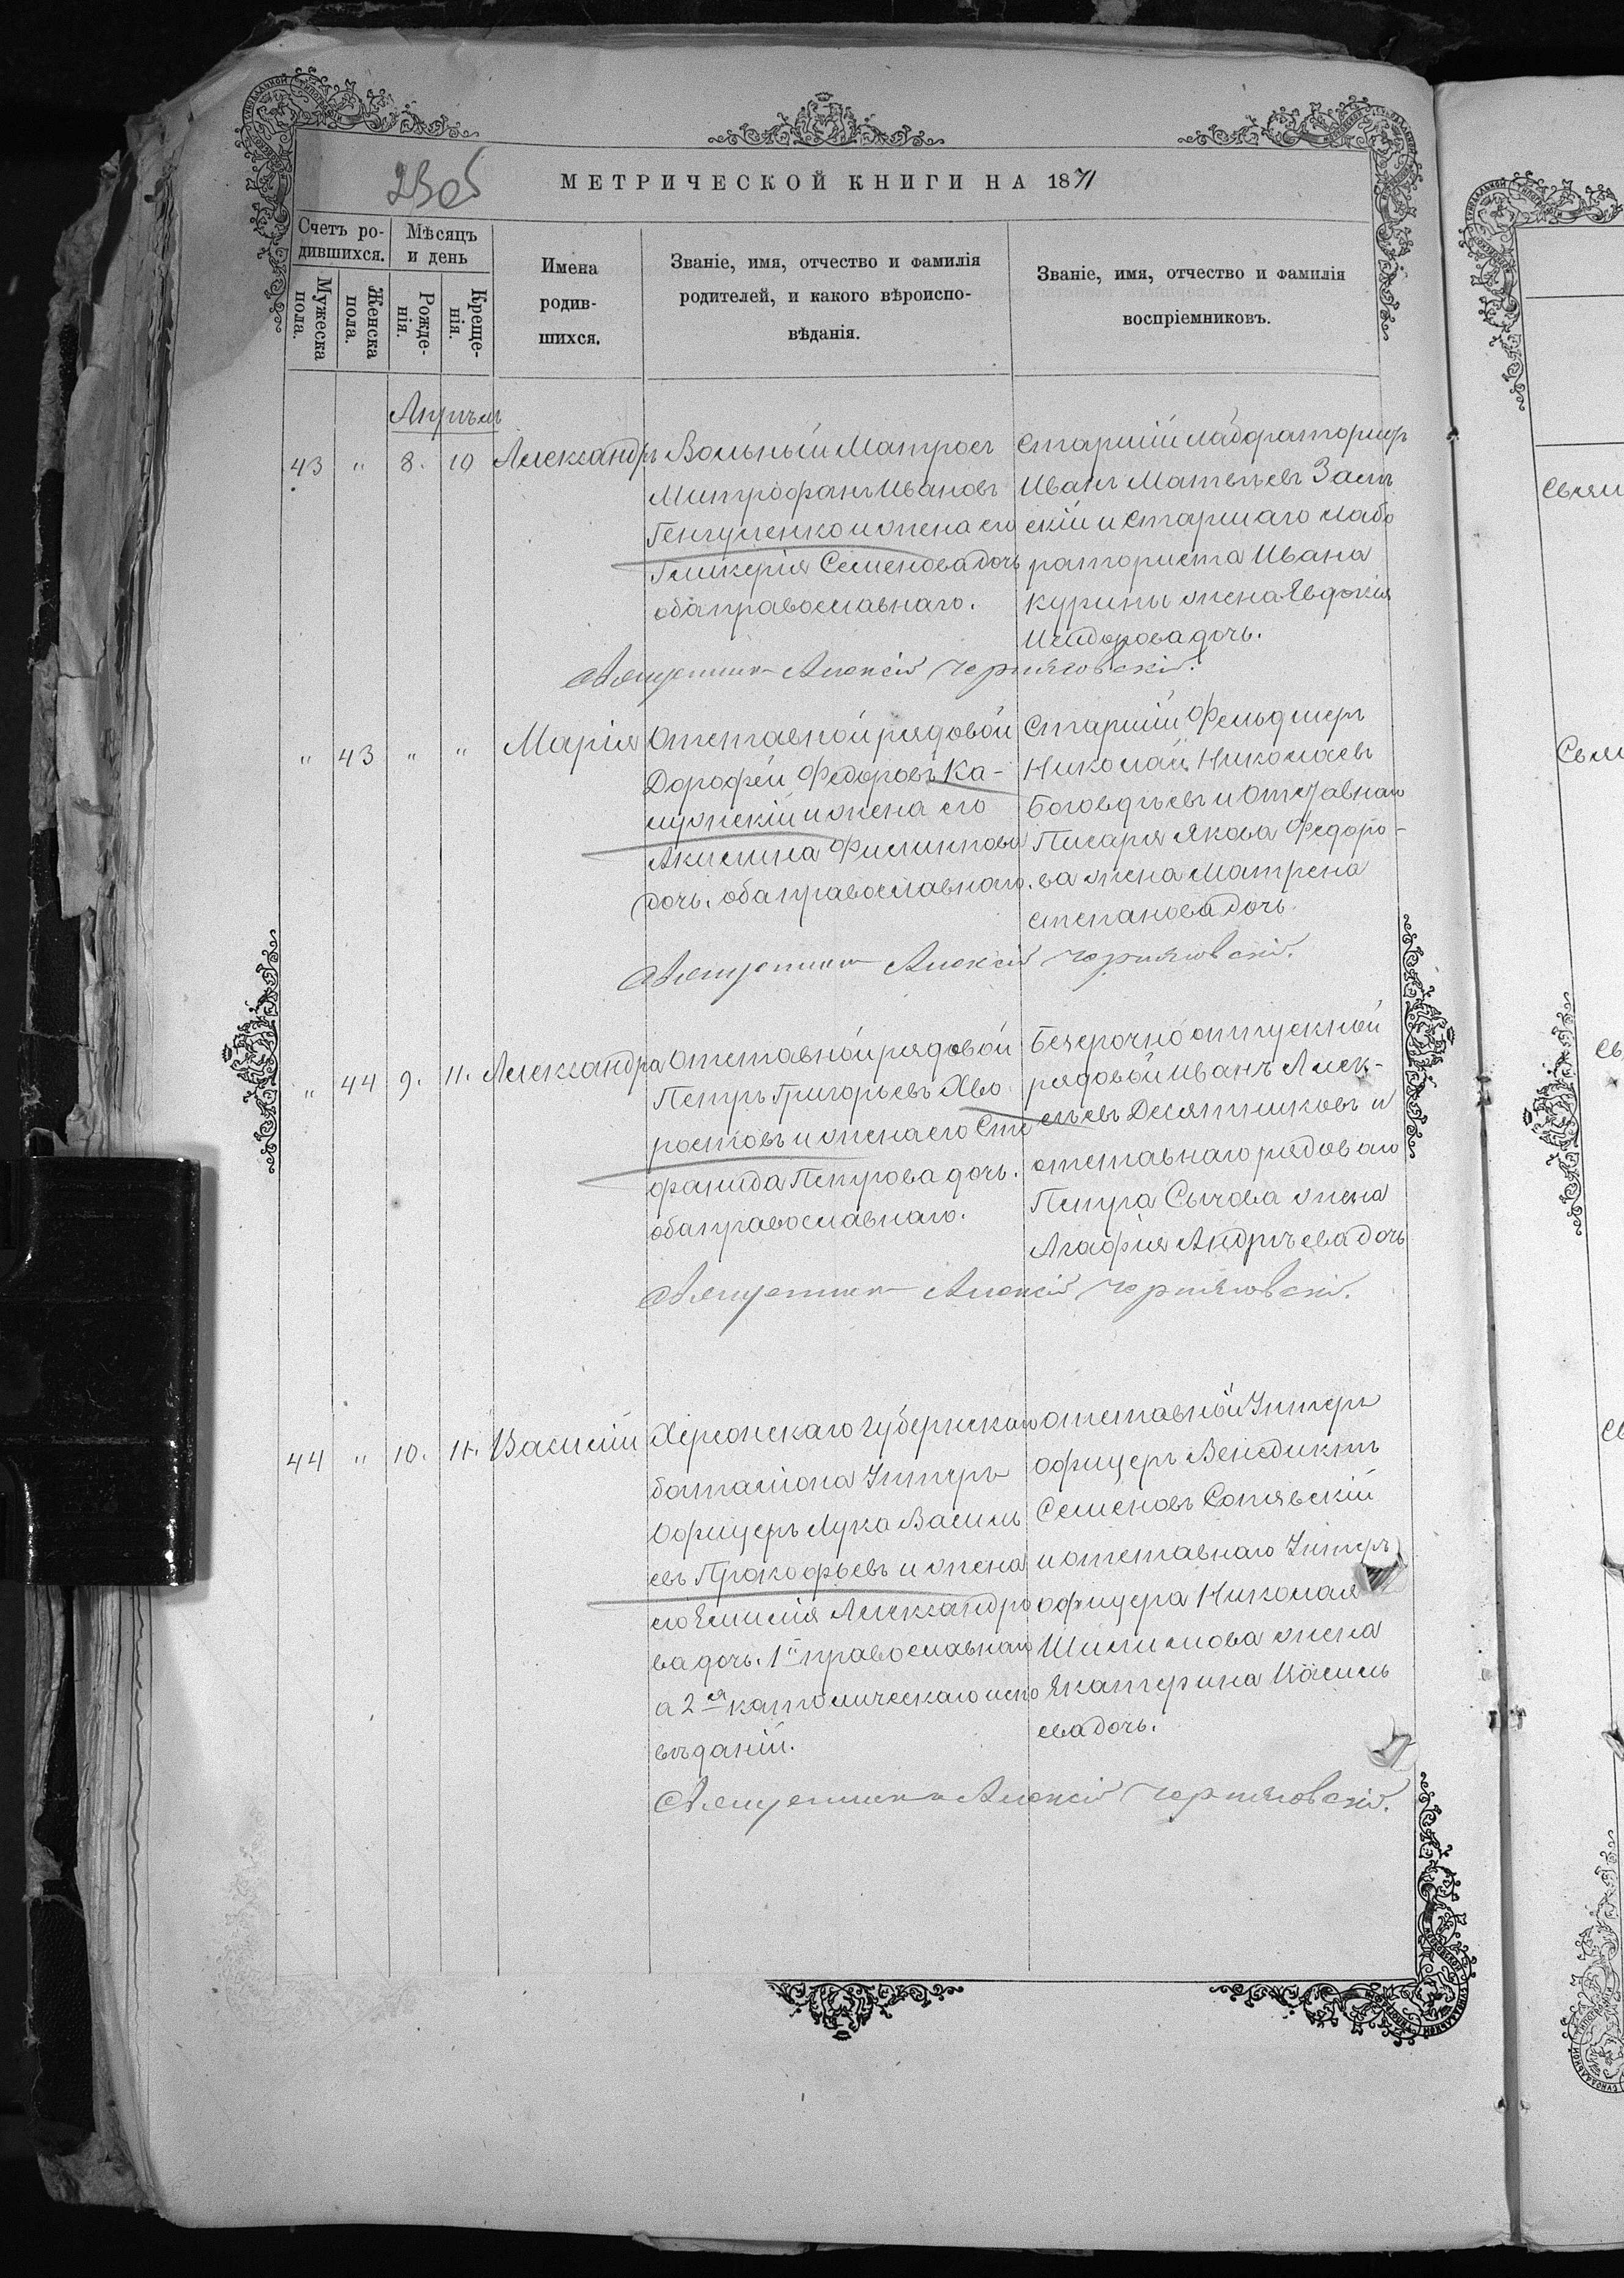 2305
МЕТРИЧЕСКОЙ КНИГИ НА 1871
Счетъ ро-
дившихся.
Мѣсяцъ
и день
Мужеска
пола.
Женска
пола.
Рожде-
нія.
Креще-
нія.
Имена
родив-
шихся.
Званіе, имя, отчество и фамилія
родителей, и какого вѣроиспо-
вѣданія.
Званіе, имя, отчество и фамилія
воспріемниковъ.
Апрѣль
43 " 8. 10 Александръ
Вольный Матросъ
Митрофанъ Ивановъ
и жена его
Гликерія Семенова дочь
оба православнаго.
Старшій лаборатористъ
Иванъ Матвѣевъ Заст
скій и старшаго лабо
раториста Ивана
Курины жена Евдокія
Исидорова дочь.
Священникъ Алексій Черняховскій.
" 43 " " Марія
Отставной рядовой
Дорофей Федоровъ Ка-
лужскій и жена его
Акилина Филиппова
дочь. оба православнаго.
Старшій Фельдшеръ
Николай Николаевъ
Боговдѣевъ и Отставнаго
Писаря Якова Федоро-
ва жена Матрена
Степанова дочь.
Священникъ Алексій Черняховскій.
" 44 9. 11. Александра
Отставной рядовой
Петръ Григорьевъ Хво
ростовъ и жена его Сте
фанида Петрова дочь.
оба православнаго.
Безсрочно отпускной
рядовой Иванъ Алек-
сѣевъ Десятниковъ и
отставнаго рядоваго
Петра Сычова жена
Агафія Андрѣева дочь
Священникъ Алексій Черняховскій.
44 " 10. 11. Василій
Херсонскаго Губернскаго
баталіона Унтеръ
Офицеръ Лука Василь
евъ Прокофьевъ и жена
его Емилія Александро
ва дочь. 1й православнаго
а 2я католическаго испо
вѣданій.
отставной Унтеръ
офицеръ Венедиктъ
Семеновъ Сотявскій
и отставнаго Унтеръ
офицера Николая
Шишилова жена
Екатерина Василь
ева дочь.
Священникъ Алексій Черняховскій.